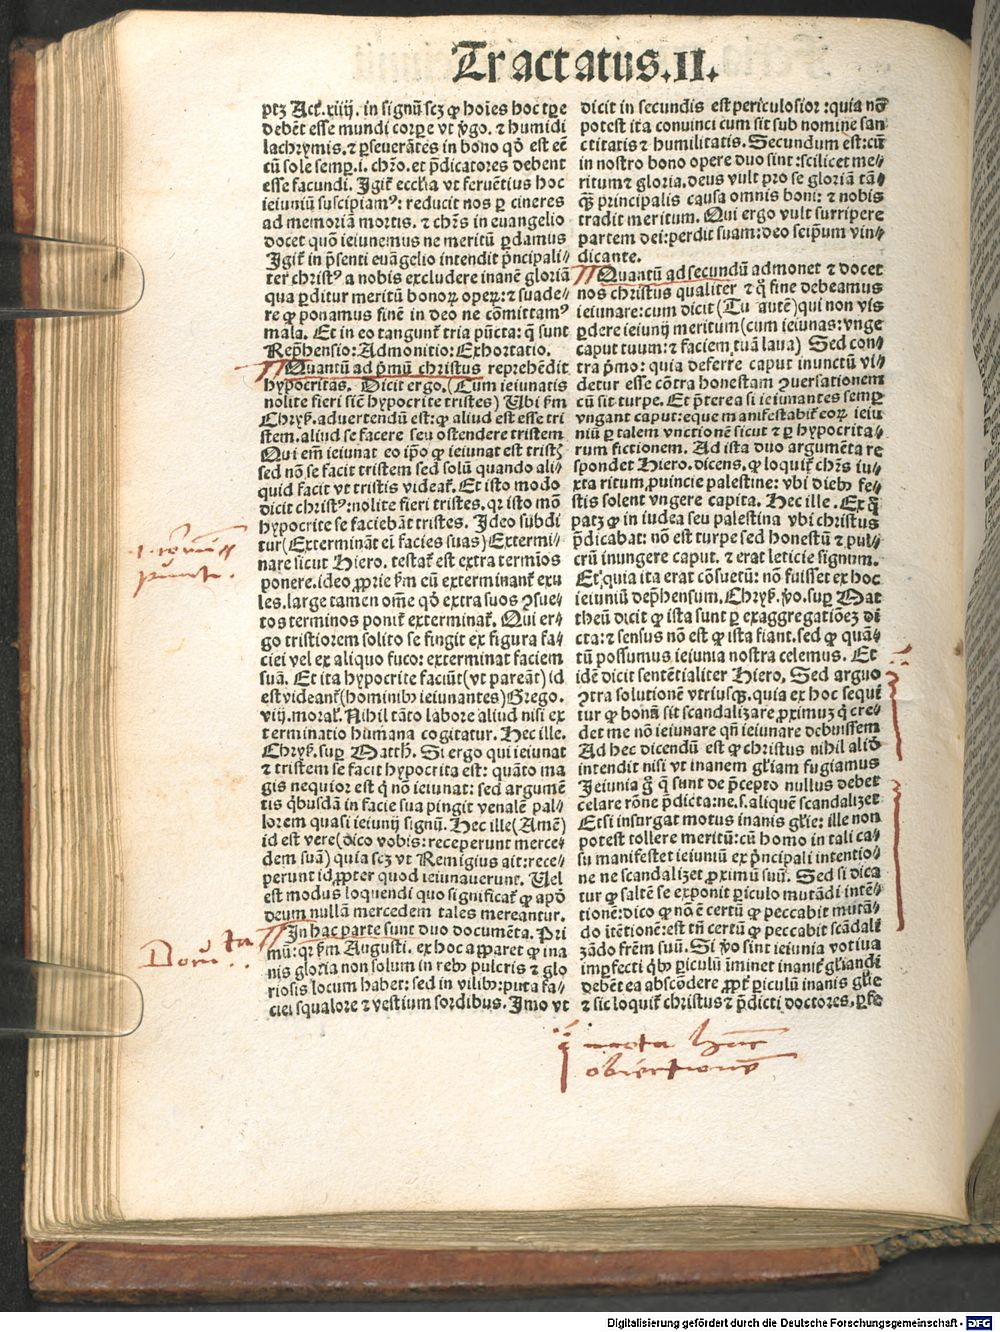 Tractatus.II.
ptꝫ Act̉. xiiij. in signũ scꝫ ꝙ hoies hoc tꝑe
debẽt esse mundi corꝑe vt ꝟgo. ⁊ humidi
lachrymis. ⁊ ꝑseuerãtes in bono qđ est eẽ
cũ sole semꝑ .i. chr̃o. et p̃dicatores debent
esse facundi. Igit̉ eccĺia vt feruẽtius hoc
ieiuniũ suscipiamꝰ: reducit nos ꝑ cineres
ad memoriã mortis. ⁊ chr̃s in euangelio
docet quõ ieiunemus ne meritũ ꝑdamus
Igit̉ in p̃senti euãgelio intendit p̃ncipali-
ter christꝰ a nobis excludere inanẽ gloriã
qua ꝑditur meritũ bonoꝝ opeꝝ: ⁊ suade-
re ꝙ ponamus finẽ in deo ne cõmittamꝰ
mala. Et in eo tangunt̉ tria pũcta: q̃ sunt
Rep̃hensio: Admonitio: Exhortatio.
Quantũ ad p̃mũ christus reprehẽdit
hypocritas. Dicit ergo. (Cum ieiunatis
nolite fieri siẽ hypocrite tristes) Vbi ẜm
Chryẜ. aduertendũ est: ꝙ aliud est esse tri
stem. aliud se facere seu ostendere tristem
Qui em̃ ieiunat eo ip̃o ꝙ ieiunat est tristꝭ
sed nõ se facit tristem sed solũ quando ali-
quid facit vt tristis videat̉. Et isto modo
dicit christꝰ: nolite fieri tristes. qr isto mõ
hypocrite se faciebãt tristes. Ideo subdi
tur (Exterminãt em̃ facies suas) Extermi-
nare sicut Hiero. testat̉ est extra termĩos
ponere. ideo ꝓprie ẜm eũ exterminant̉ exu
les. large tamen om̃e qđ extra suos ꝯsue-
tos terminos ponit̉ exterminat̉. Qui er-
go tristiorem solito se fingit ex figura fa-
ciei vel ex aliquo fuco: exterminat faciem
suã. Et ita hypocrite faciũt (vt pareãt) id
est videant̉ (hominibꝰ ieiunantes) Grego.
viij. moral̉. Nihil tãto labore aliud nisi ex
terminatio humana cogitatur. Hec ille.
Chryẜ. suꝑ Matth̃. Si ergo qui ieiunat
⁊ tristem se facit hypocrita est: quãto ma
gis nequior est q̃ nõ ieiunat: sed argumẽ
tis q̃busdã in facie sua pingit venalẽ pal-
lorem quasi ieiunij signũ. Hec ille (Amẽ)
id est vere (dico vobis: receperunt merce-
dem suã) quia scꝫ vt Remigius ait: rece-
perunt id ꝓpter quod ieiunauerunt. Uel
est modus loquendi quo significat̉ ꝙ apđ
deum nullã mercedem tales mereantur.
In hac parte sunt duo documẽta. Pri
mũ: qr ẜm Augusti. ex hoc apparet ꝙ ina
nis gloria non solum in rebꝰ pulcris ⁊ glo
riosis locum habet: sed in vilibꝰ: puta fa-
ciei squalore ⁊ vestium sordibus. Imo vt
dicit in secundis est periculosior: quia nõ
potest ita conuinci cum sit sub nomine san
ctitatis ⁊ humilitatis. Secundum est: cũ
in nostro bono opere duo sint: scilicet me-
ritum ⁊ gloria. deus vult pro se gloriã tã-
q̃ꝫ principalis causa omnis boni: ⁊ nobis
tradit meritum. Qui ergo vult surripere
partem dei: perdit suam: deo seipsum vin-
dicante.
Quantũ ad secundũ admonet ⁊ docet
nos christus qualiter ⁊ q̃ fine debeamus
ieiunare: cum dicit (Tu autẽ) qui non vis
ꝑdere ieiunij meritum (cum ieiunas: vnge
caput tuum: ⁊ faciem tuã laua) Sed con-
tra p̃mo: quia deferre caput inunctũ vi-
detur esse cõtra honestam ꝯuersationem
cũ sit turpe. Et p̃terea si ieiunantes semꝑ
vngant caput: eque manifestabit̉ eoꝝ ieiu
niũ ꝑ talem vnctionẽ sicut ⁊ ꝑ hypocrita-
rum fictionem. Ad ista duo argumẽta re
spondet Hiero. dicens. ꝙ loquit̉ chr̃s iu-
xta ritum ꝓuincie palestine: vbi diebꝰ fe-
stis solent vngere capita. Hec ille. Ex q̃
patꝫ ꝙ in iudea seu palestina vbi christus
p̃dicabat: nõ est turpe sed honestũ ⁊ pul-
crũ inungere caput. ⁊ erat leticie signum.
Et quia ita erat cõsuetũ: nõ fuisset ex hoc
ieiuniũ dep̃hensum. Chryẜ. ꝟo. suꝑ Mat
theũ dicit ꝙ ista sunt ꝑ exaggeratiõeꝫ di
cta: ⁊ sensus nõ est ꝙ ista fiant. sed ꝙ quã-
tũ possumus ieiunia nostra celemus. Et
idẽ dicit sentẽtialiter Hiero. Sed arguo
ꝯtra solutionẽ vtriusqꝫ. quia ex hoc sequi
tur ꝙ bonũ sit scandalizare ꝓximuꝫ q̃ cre-
det me nõ ieiunare qñ ieiunare debuissem
Ad hec dicendũ est ꝙ christus nihil aliđ
intendit nisi vt inanem gĺiam fugiamus
Ieiunia g̃ q̃ sunt de p̃cepto nullus debet
celare rõne p̃dicta: ne .s. aliquẽ scandalizet
Etsi insurgat motus inanis gĺie: ille non
potest tollere meritũ: cũ homo in tali ca-
su manifestet ieiuniũ ex p̃ncipali intentio-
ne ne scandalizet ꝓximũ suũ. Sed si dica
tur ꝙ saltẽ se exponit ꝑiculo mutãdi intẽ-
tionẽ: dico ꝙ nõ ẽ certũ ꝙ peccabit mutã-
do ĩtẽtionẽ: est tñ certũ ꝙ peccabit scãdali
zãdo fr̃em suũ. Si ꝟo sint ieiunia votiua
imꝑfecti q̃bꝰ ꝑiculũ im̃inet inanit̉ gĺiandi
debẽt ea abscõdere ꝓpt̉ ꝑiculũ inanis gĺie
⁊ sic loquit̉ christus ⁊ p̃dicti doctores. ꝑfe
punct.
Docu ta
nota hãc
obiectionẽ
Digitalisierung gefördert durch die Deutsche Forschungsgemeinschaft - DFG